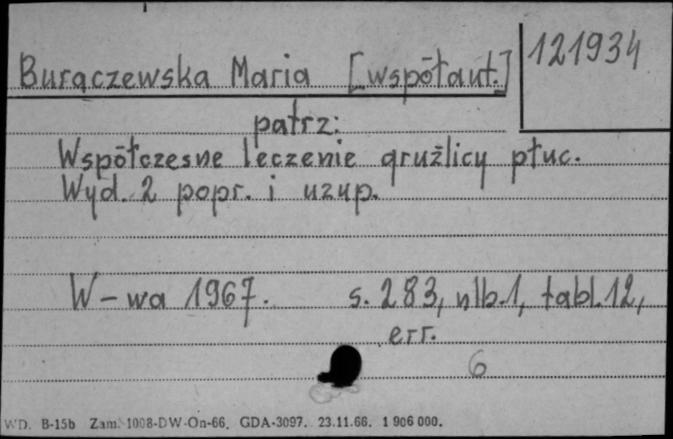 Burączewska Maria [współaut.]
121934
patrz:
Współczesne leczenie gruźlicy płuc.
Wyd. 2 popr. i uzup.
W-wa 1967. s. 283, nlb.1, tabl.12,
err.
6
WD. B-15b Zam. 1008-DW-On-66. GDA-3097. 23.11.66. 1 906 000.